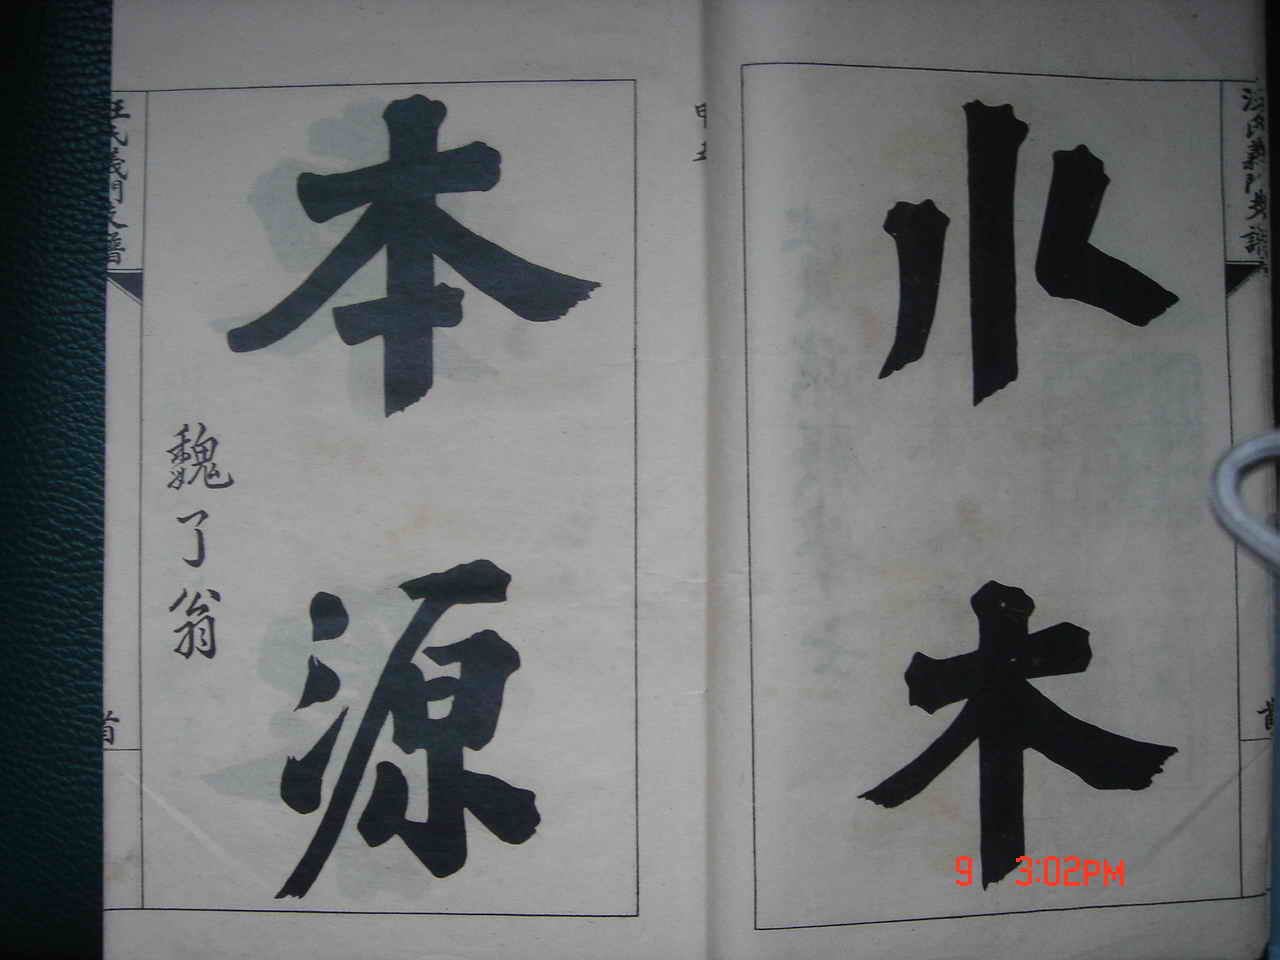 汪氏義門支譜
首
水木
本源
魏了翁
汪氏義門支譜
首
9 3:02PM